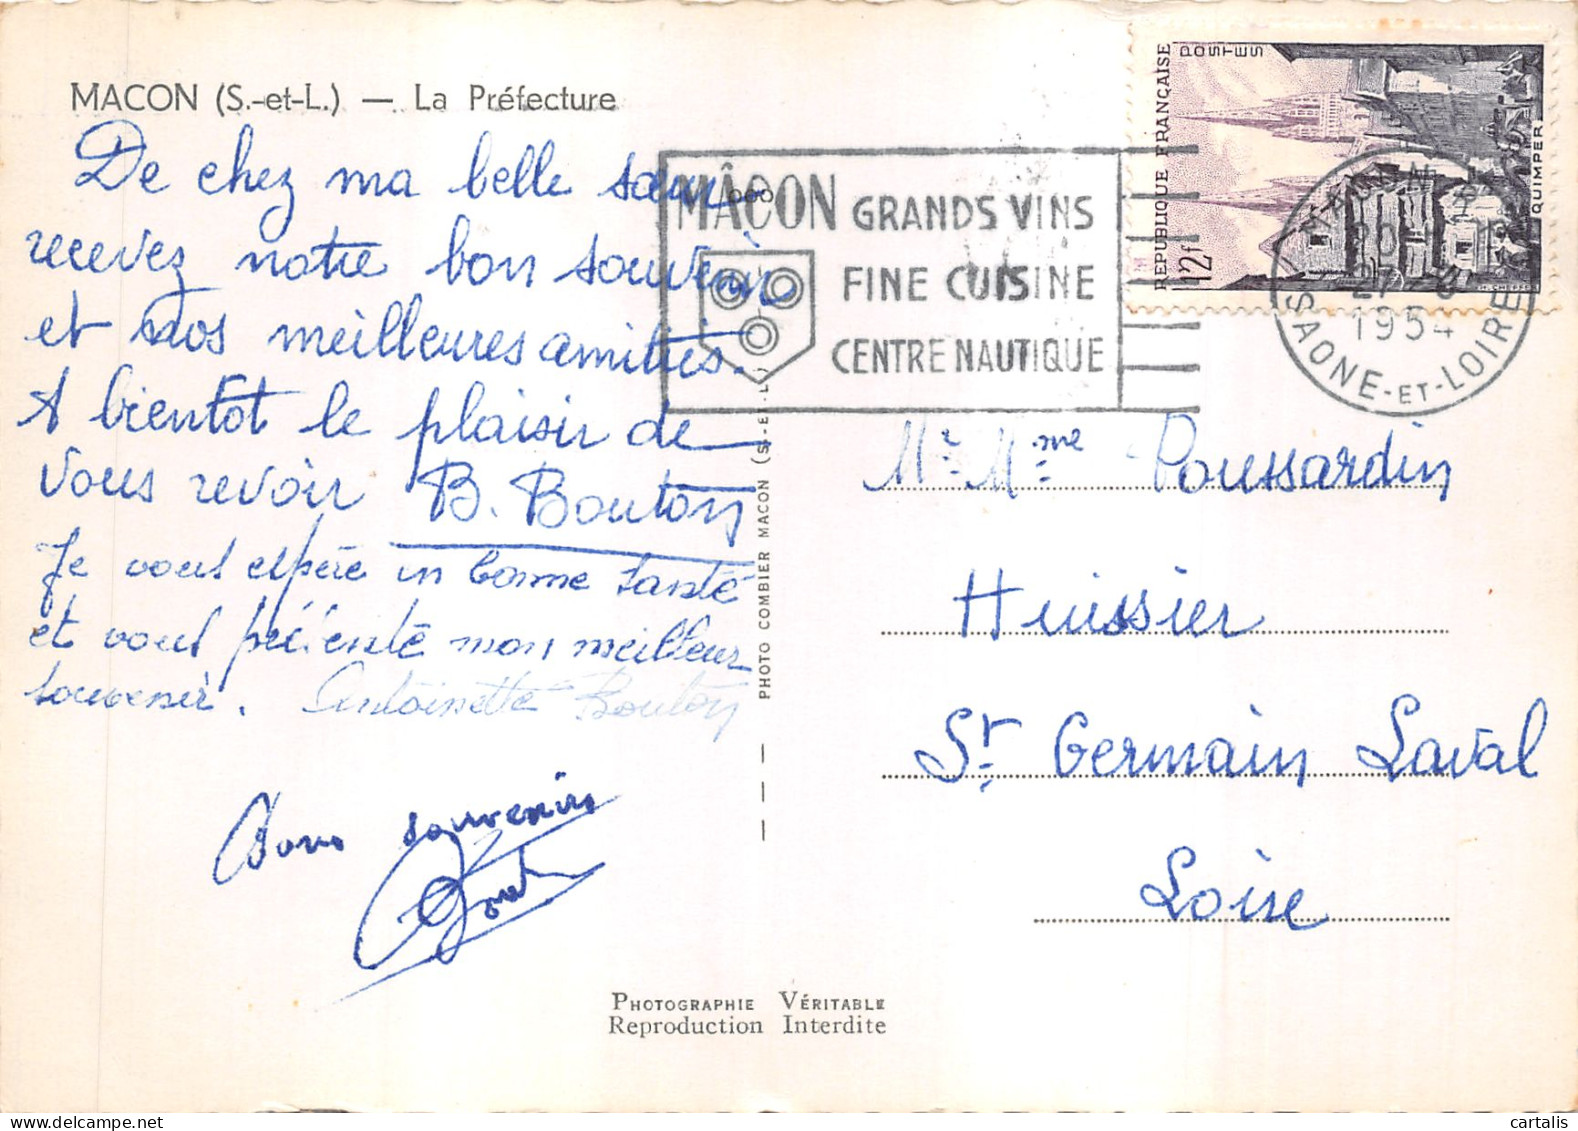 MACON (S.-et-L.) — La Préfecture
De chez ma belle sœur
recevez notre bon souvenir
et nos meilleures amitiés.
A bientôt le plaisir de
vous revoir B. Bouton
Je vous espère en bonne santé
et vous présente mon meilleur
souvenir. Antoinette Bouton
Bons souvenirs
PHOTO COMBIER MACON (S.-ET-L.)
MÂCON GRANDS VINS
FINE CUISINE
CENTRE NAUTIQUE
REPUBLIQUE FRANÇAISE
POSTES
12f
QUIMPER
1954
SAONE-ET-LOIRE
Mr. Mme Poussardin
Huissier
St Germain Laval
Loire
PHOTOGRAPHIE VÉRITABLE
Reproduction Interdite
cartalis